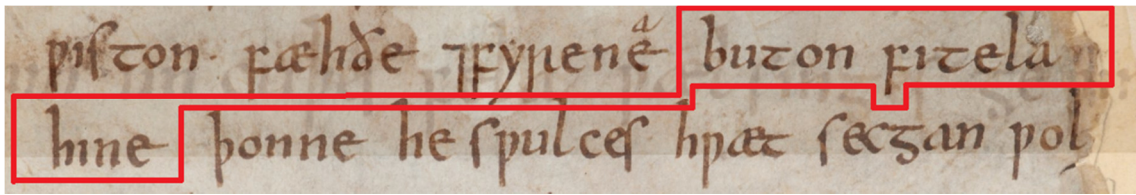 ƿiston fæhðe ⁊fyreneͣ buton fitela
hine þonne he sƿulces hƿæt secgan ƿol